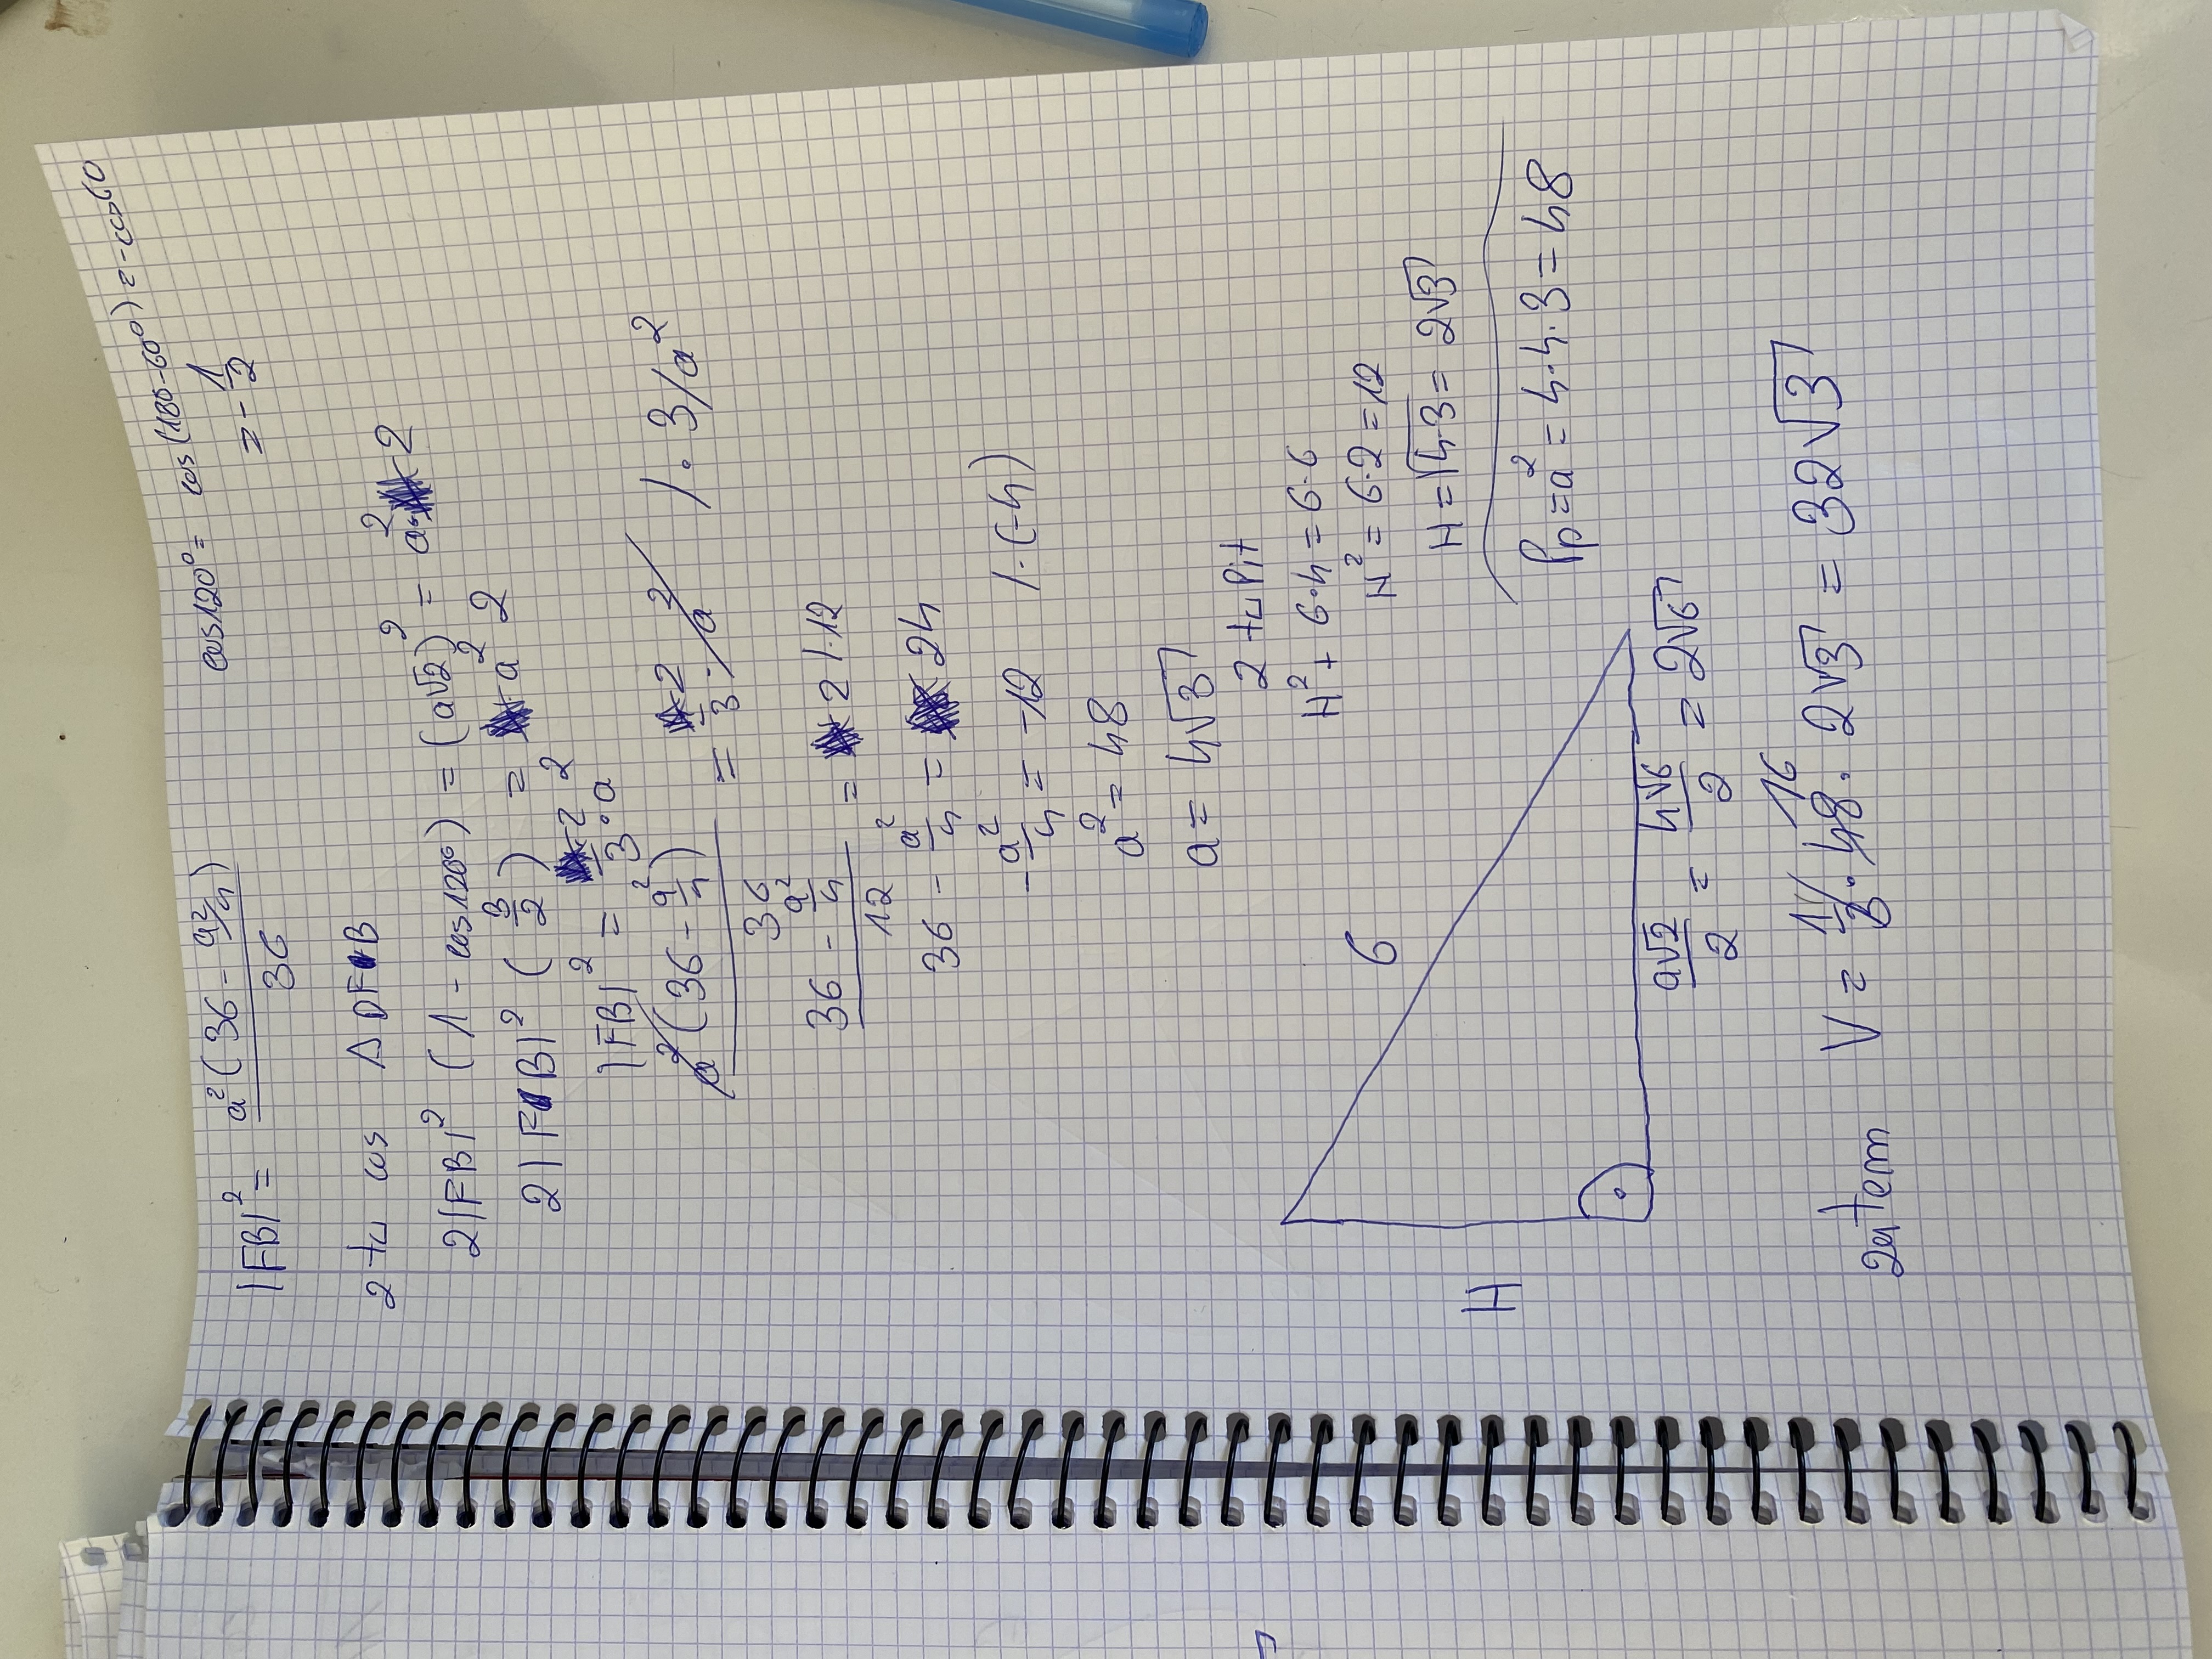 cos120° = cos(180-60°) = -cos60
= -1/2
|FB|² = a²(36 - a²/4) / 36
z tw cos Δ DFB
2|FB|² (1 - cos120°) = (a√2)² = a²·2
2|FB|² (3/2) = a² 2
|FB|² = 2/3 · a²
a²(36 - a²/4) / 36 = 2/3 · a² /·3/a²
(36 - a²/4) / 12 = 2 /·12
36 - a²/4 = 24
-a²/4 = -12 /·(-4)
a² = 48
a = 4√3
z tw Pit
H² + 6·4 = 6·6
H² = 6·2 = 12
H = √4·3 = 2√3
Pp = a² = 4·4·3 = 48
6
H
a√2/2 = 4√6/2 = 2√6
zatem V = 1/3 · 48 · 2√3 = 32√3
16